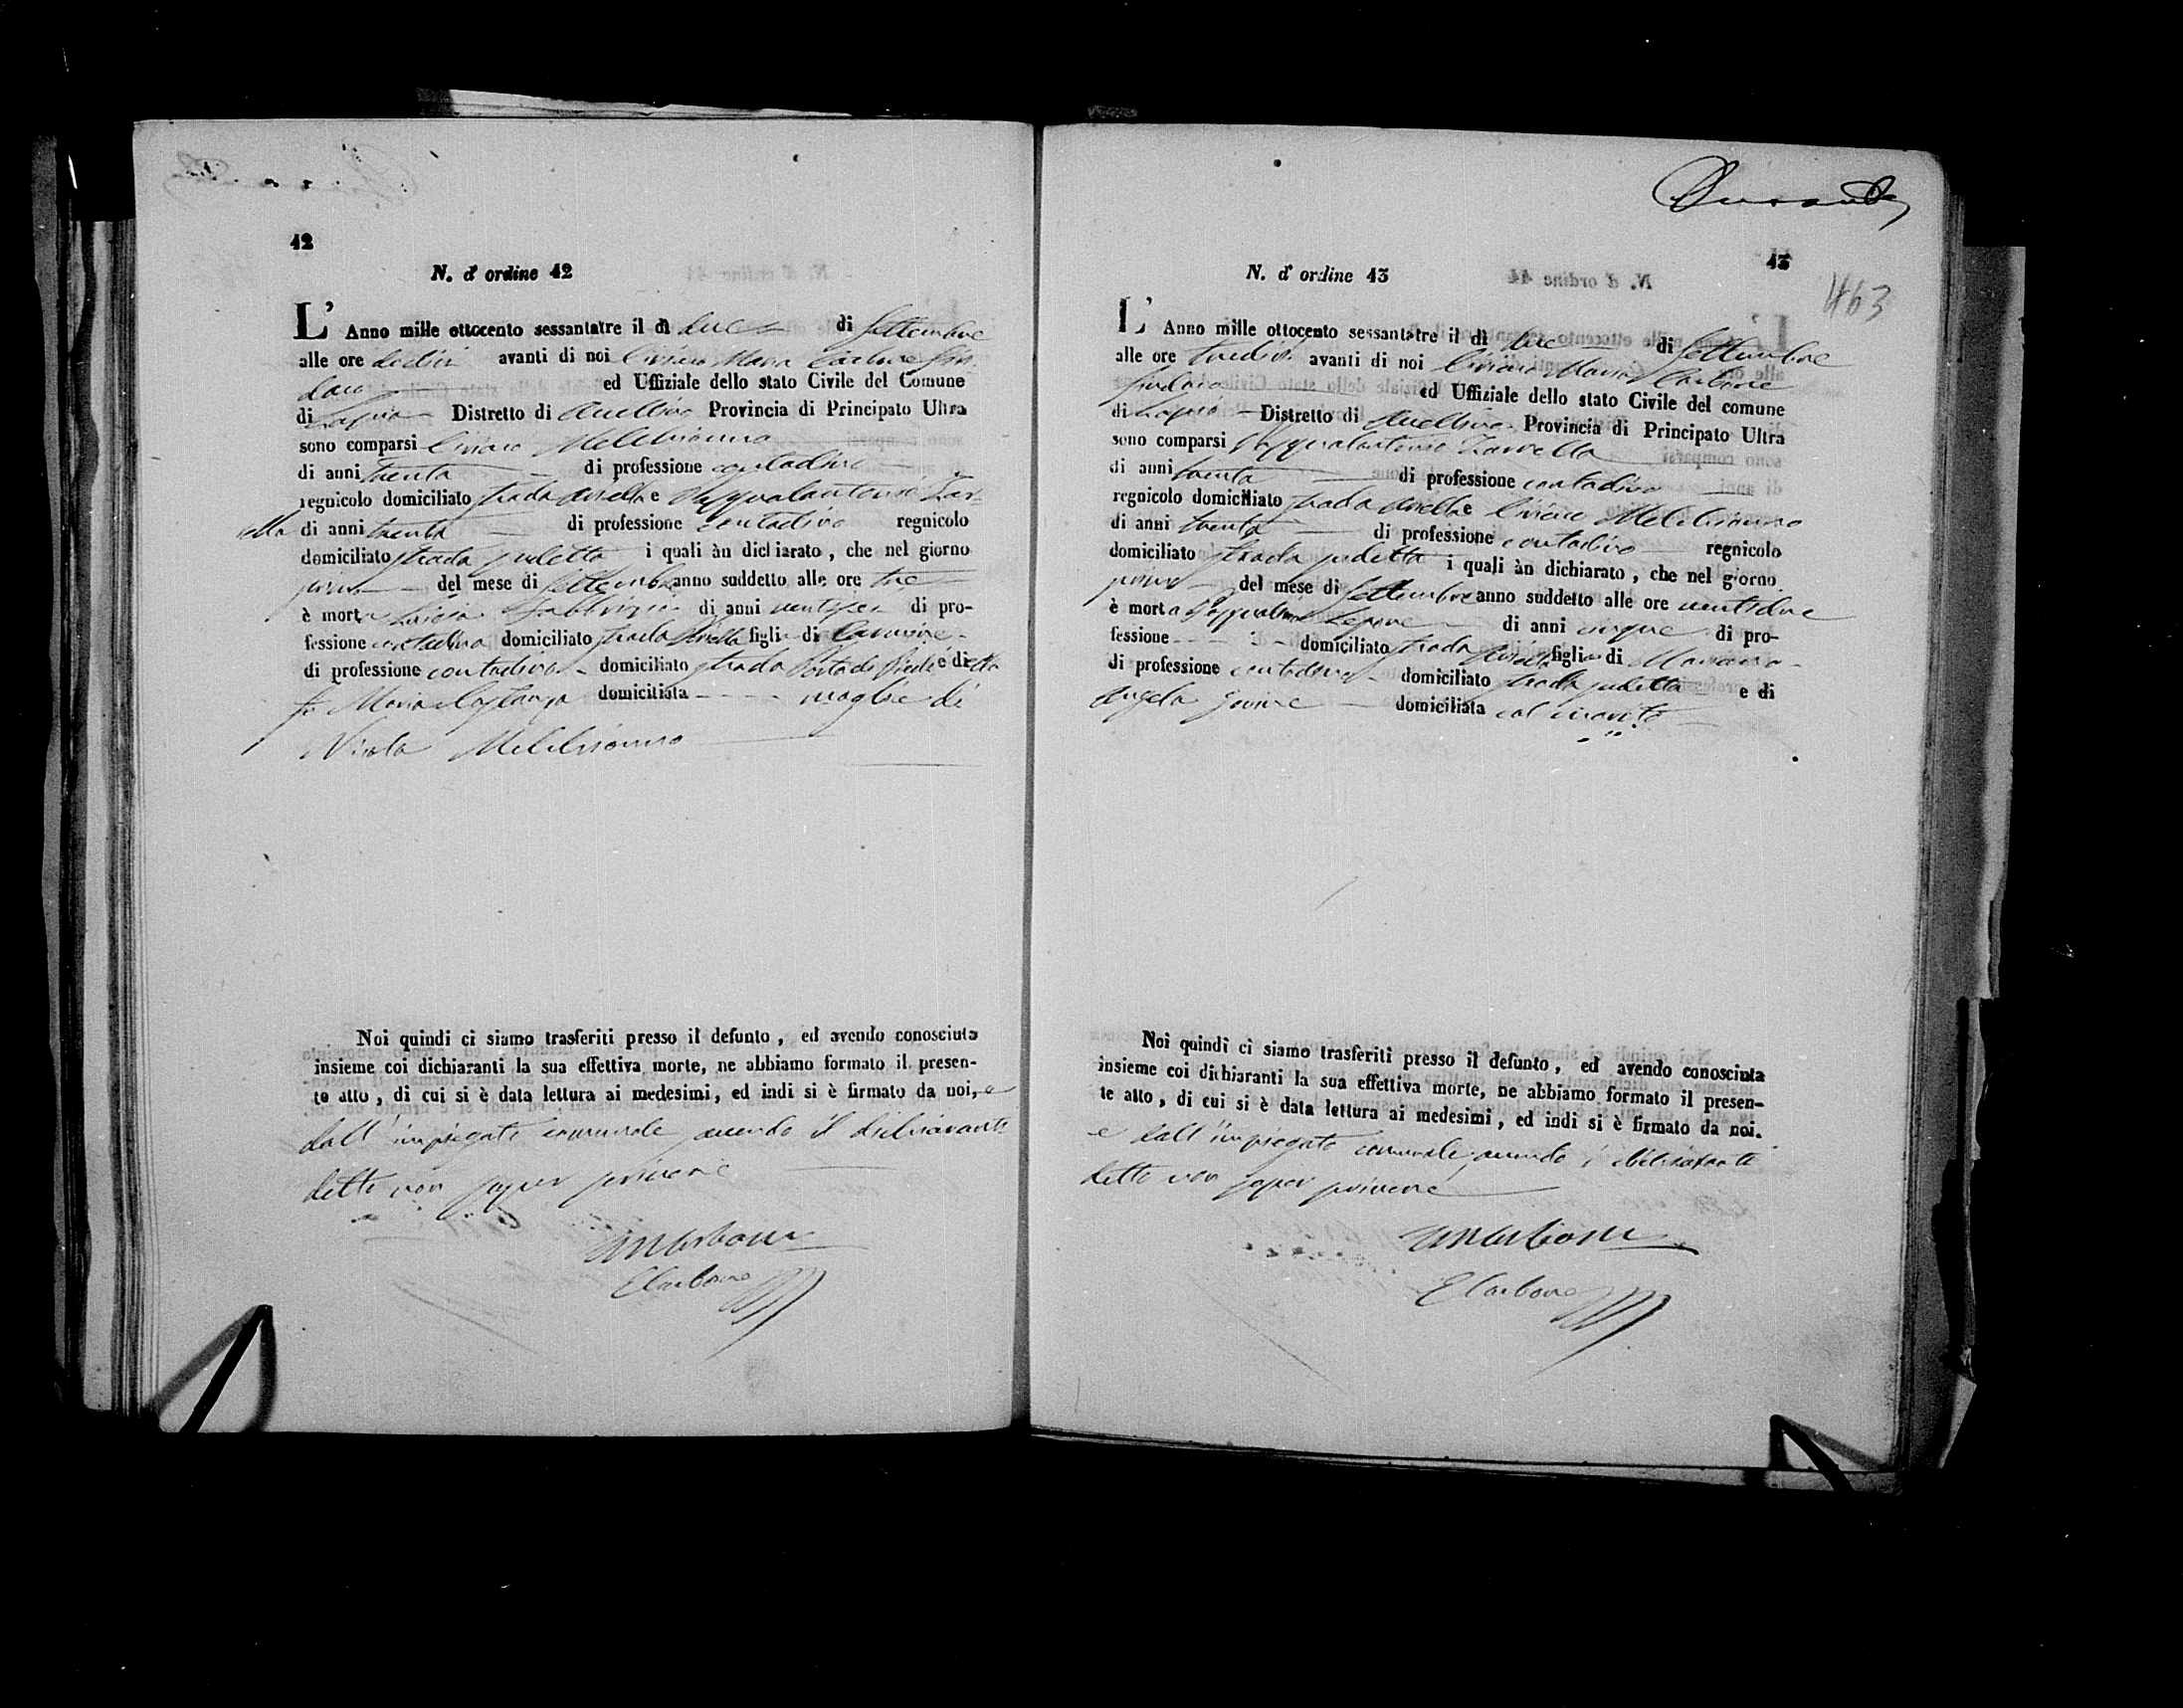 42
N. d' ordine 42
L' Anno mille ottocento sessantatre il dì due di Settembre
alle ore dodici avanti di noi Ciriaco Maria Carbone Sin
daco ed Uffiziale dello stato Civile del Comune
di Lapio Distretto di Avellino Provincia di Principato Ultra
sono comparsi Ciriaco Melchionno
di anni trenta di professione contadino
regnicolo domiciliato strada e Pasqualantonio Zar
rella di anni trenta di professione contadino regnicolo
domiciliato strada sudetta i quali àn dichiarato, che nel giorno
primo del mese di Settembre anno suddetto alle ore tre
è morta Lucia Fabbrizio di anni ventisei di pro-
fessione contadina domiciliato strada figlia di Carmine
di professione contadino domiciliato strada e di
fu Maria Costanza domiciliata moglie di
Nicola Melchionno
Noi quindi ci siamo trasferiti presso il defunto, ed avendo conosciuta
insieme coi dichiaranti la sua effettiva morte, ne abbiamo formato il presen-
te atto, di cui si è data lettura ai medesimi, ed indi si è firmato da noi, e
dall'impiegato comunale avendo il dichiarante
detto non saper scrivere
CMCarbone
ECarbone
43
463
N. d' ordine 43
L' Anno mille ottocento sessantatre il dì due di Settembre
alle ore tredici avanti di noi Ciriaco Maria Carbone
Sindaco ed Uffiziale dello stato Civile del comune
di Lapio Distretto di Avellino Provincia di Principato Ultra
sono comparsi Pasqualantonio Zarrella
di anni trenta di professione contadino
regnicolo domiciliato strada e Ciriaco Melchionno
di anni trenta di professione contadino regnicolo
domiciliato strada sudetta i quali àn dichiarato, che nel giorno
primo del mese di Settembre anno suddetto alle ore ventidue
è morta Lepore di anni cinque di pro-
fessione domiciliato strada figlia di
di professione contadino domiciliato strada sudetta e di
Angela Iovine domiciliata col marito
Noi quindi ci siamo trasferiti presso il defunto, ed avendo conosciuta
insieme coi dichiaranti la sua effettiva morte, ne abbiamo formato il presen-
te atto, di cui si è data lettura ai medesimi, ed indi si è firmato da noi.
e dall'impiegato comunale avendo i dichiaranti
detto non saper scrivere
CMCarbone
ECarbone